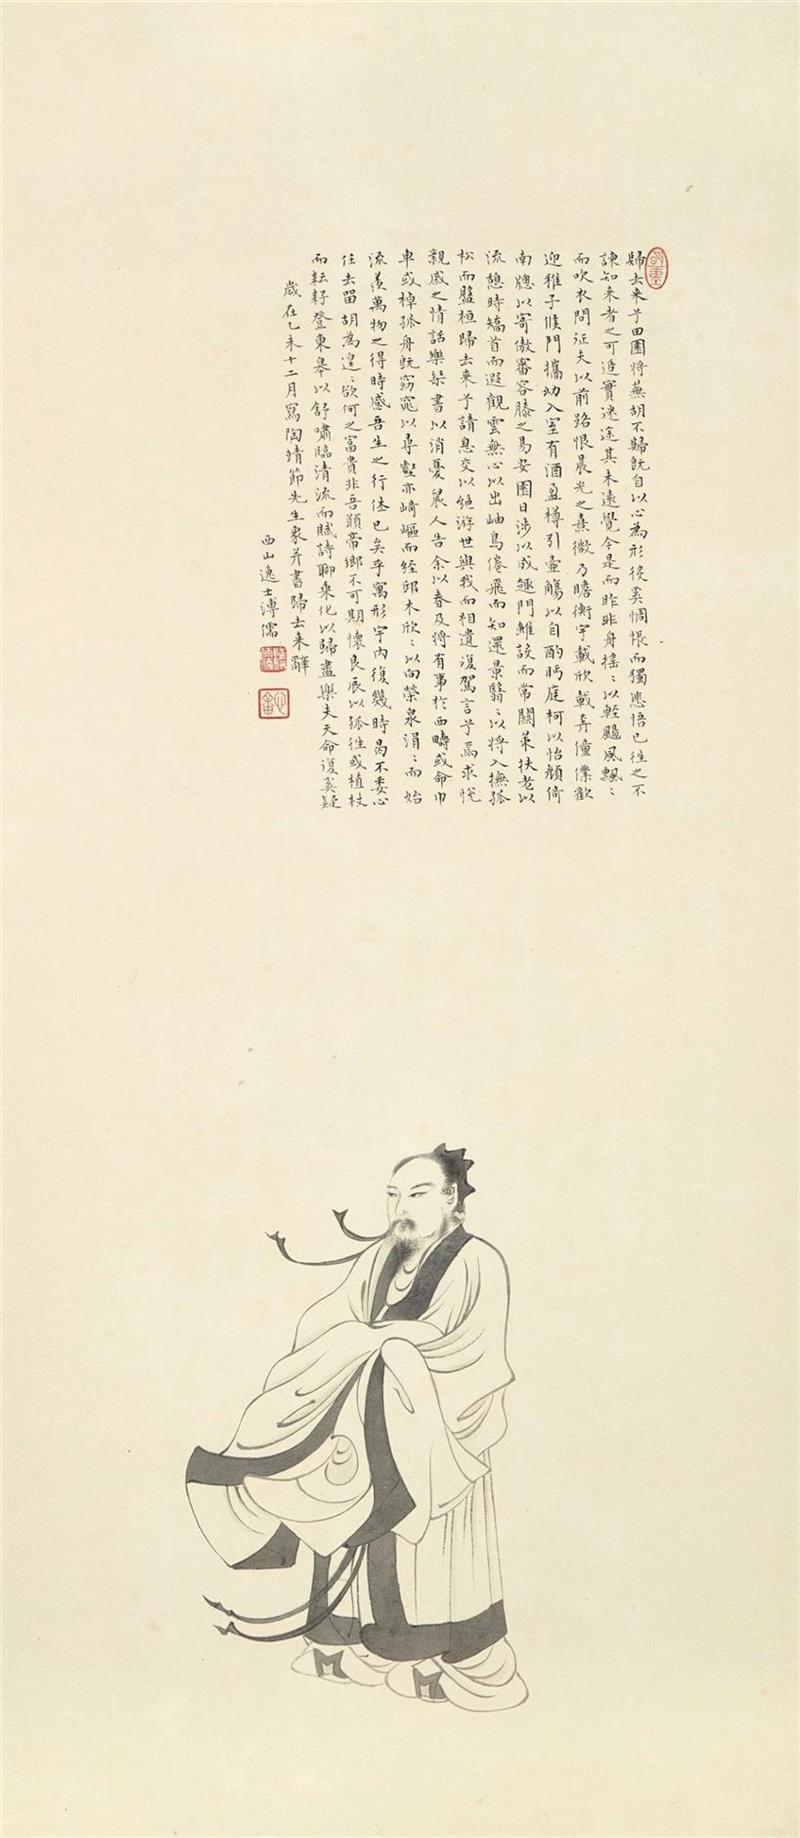 歸去来兮田園將蕪胡不歸既自以心為形役奚惆悵而獨悲悟已往之不
諫知来者之可追實迷途其未遠覺今是而昨非舟搖〻以輕颺風飄〻
而吹衣問征夫以前路恨晨光之熹微乃瞻衡宇載欣載奔僮僕歡
迎稚子候門攜幼入室有酒盈樽引壺觴以自酌眄庭柯以怡顏倚
南牕以寄傲審容膝之易安園日涉以成趣門雖設而常關策扶老以
流憩時矯首而遐觀雲無心以出岫鳥倦飛而知還景翳〻以將入撫孤
松而盤桓歸去来兮請息交以絕游世與我而相遺復駕言兮焉求悅
親戚之情話樂琴書以消憂農人告余以春及將有事於西疇或命巾
車或棹孤舟既窈窕以尋壑亦崎嶇而經邱木欣〻以向榮泉涓〻而始
流羨萬物之得時感吾生之行休已矣乎寓形宇內復幾時曷不委心
任去留胡為遑〻欲何之富貴非吾願帝鄉不可期懷良辰以孤往或植杖
而耘耔登東皋以舒嘯臨清流而賦詩聊乘化以歸盡樂夫天命復奚疑
歲在乙未十二月寫陶靖節先生象并書歸去来辭
西山逸士溥儒
溥儒
心畬